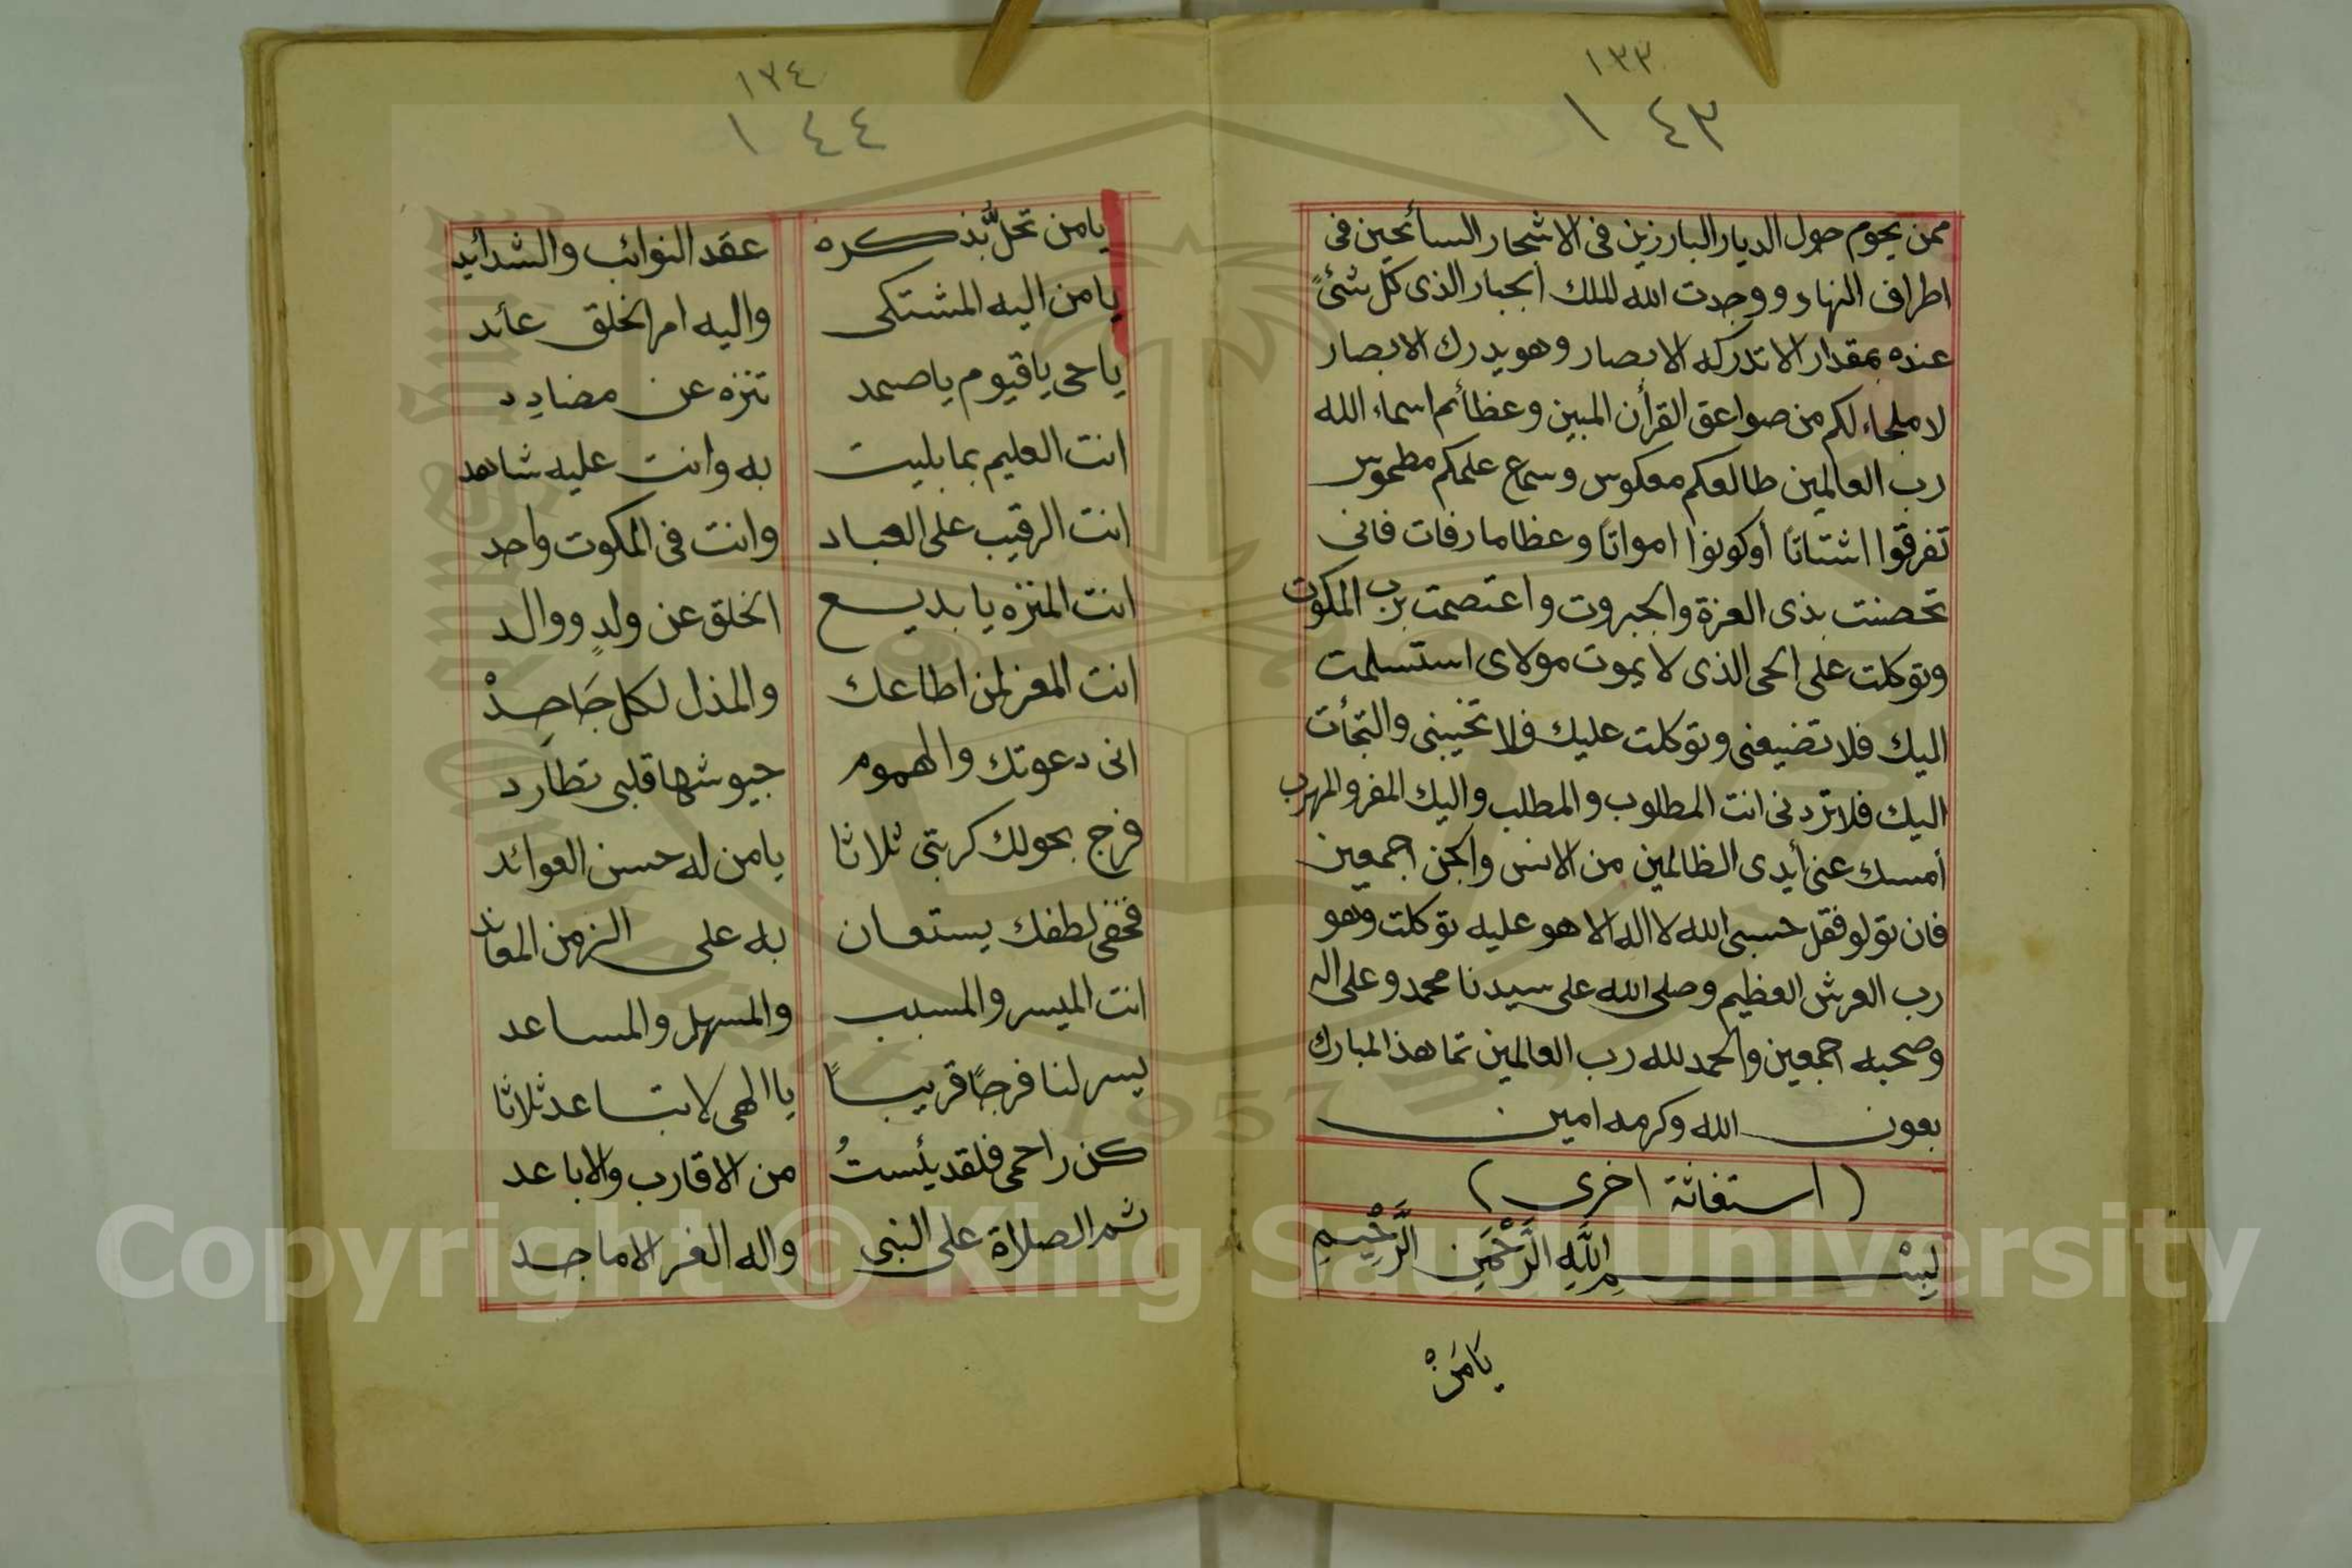 ١٣٣
١٤٣
ممن يحوم حول الديار البارزين فى الاشحار السائحين فى
اطراف النهار ووجدت الله الملك الجبار الذى كل شئ
عنده بمقدار لا تدركه الابصار وهو يدرك الابصار
لا ملجاء لكم من صواعق القرأن المبين وعظائم اسماء الله
رب العالمين طالعكم معكوس وسمع علمكم مطموس
تفرقوا اشتاتا أوكونوا امواتًا وعظاما رفات فانى
تحصنت بذى العزة والجبروت واعتصمت برب الملكوت
وتوكلت على الحى الذى لا يموت مولاى استسلمت
اليك فلا تضيعنى وتوكلت عليك فلا تخيبنى والتجأت
اليك فلا تردنى انت المطلوب والمطلب واليك المفر والمهرب
أمسك عنى أيدى الظالمين من الانس والجن اجمعين
فان تولو فقل حسبى الله لا اله الا هو عليه توكلت وهو
رب العرش العظيم وصلى الله على سيدنا محمد وعلى اله
وصحبه اجمعين والحمد لله رب العالمين تما هذ المبارك
بعون الله وكرمه امين
(استغاثة اخرى)
بِسْمِ اللَّهِ الرَّحْمَنِ الرَّحِيمِ
يَامَنْ
١٣٤
١٤٤
يامن تحلُّ بذكره عقد النوائب والشدائد
يامن اليه المشتكى واليه امر الخلق عائد
ياحى ياقيوم ياصمد تنزه عن مضادد
انت العليم بما بليت به وانت عليه شاهد
انت الرقيب على العباد وانت فى المكوت واحد
انت المنزه يا بديع الخلق عن ولدٍ ووالد
انت المعز لمن اطاعك والمذل لكل جَاحِدْ
انى دعوتك والهموم جيوشها قلبى تطارد
فرج بحولك كربتى ثلاثا يامن له حسن العوائد
فخفى لطفك يستعان به على الزمن المعاند
انت الميسر والمسبب والمسهل والمساعد
يسر لنا فرجًا قريبًا يا الهى لا تباعد ثلاثا
كن راحمى فلقد يئستُ من الاقارب والاباعد
ثم الصلاة على النبى واله الغر الاماجد
Copyright © King Saud University
1957